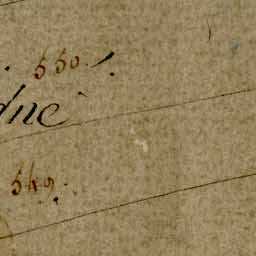 550.
dne
549.